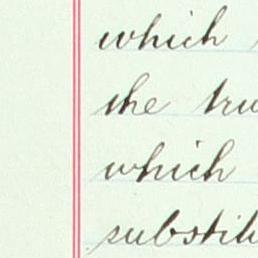 which
the tru
which
substit